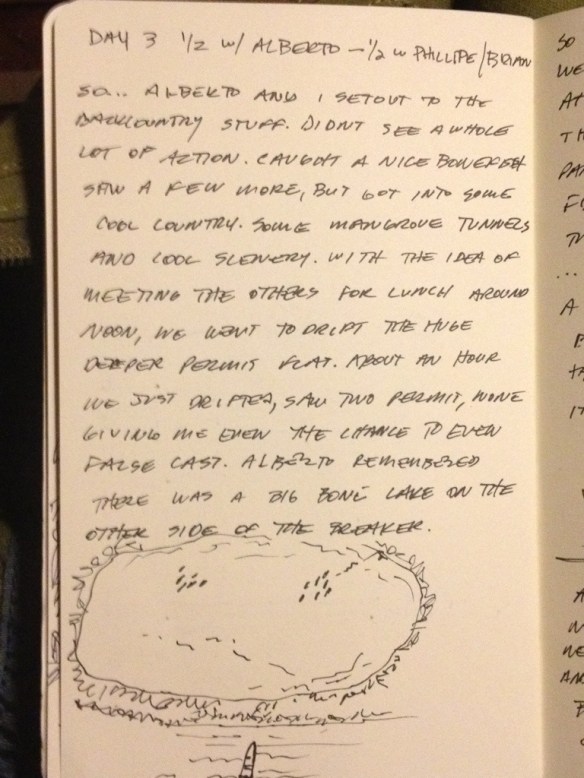 DAY 3 1/2 w/ ALBERTO - 1/2 w PHILLIPE/BRIAN
SO.. ALBERTO AND I SETOUT TO THE
BACKCOUNTRY STUFF. DIDNT SEE A WHOLE
LOT OF ACTION. CAUGHT A NICE BONEFISH
SAW A FEW MORE, BUT GOT INTO SOME
COOL COUNTRY. SOME MANGROVE TUNNELS
AND COOL SCENERY. WITH THE IDEA OF
MEETING THE OTHERS FOR LUNCH AROUND
NOON, WE WENT TO DRIFT THE HUGE
DEEPER PERMIT FLAT. ABOUT AN HOUR
WE JUST DRIFTED, SAW TWO PERMIT, NONE
GIVING ME EVEN THE CHANCE TO EVEN
FALSE CAST. ALBERTO REMEMBERED
THERE WAS A BIG BONE LAKE ON THE
OTHER SIDE OF THE BREAKER.
SO
WE
AT
TH
PA
...
A